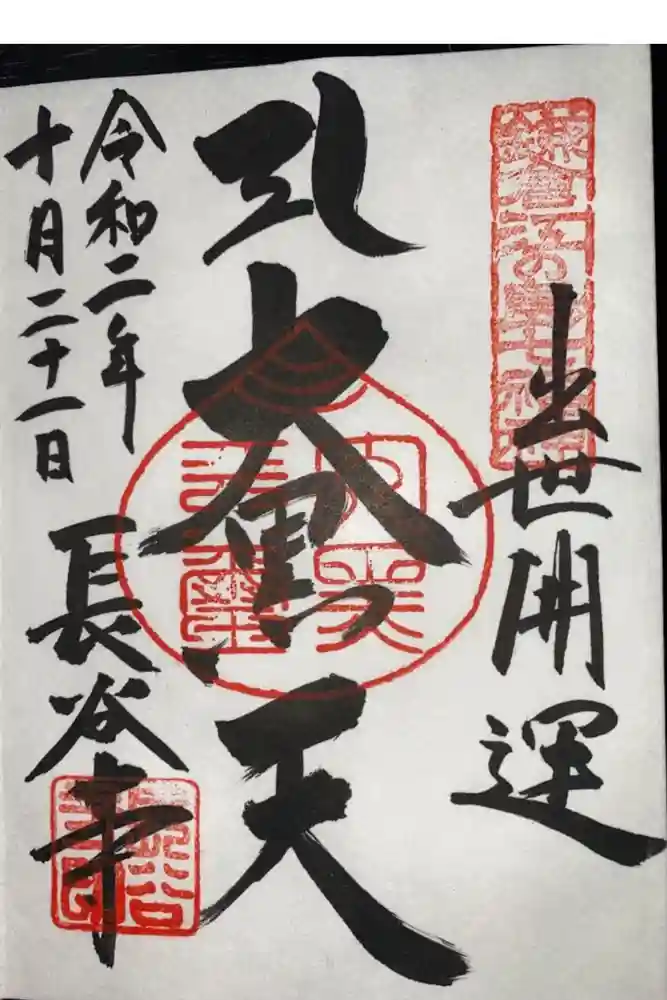 鎌倉江の島七福神
出世開運
大黒天
令和二年
十月二十一日
長谷寺